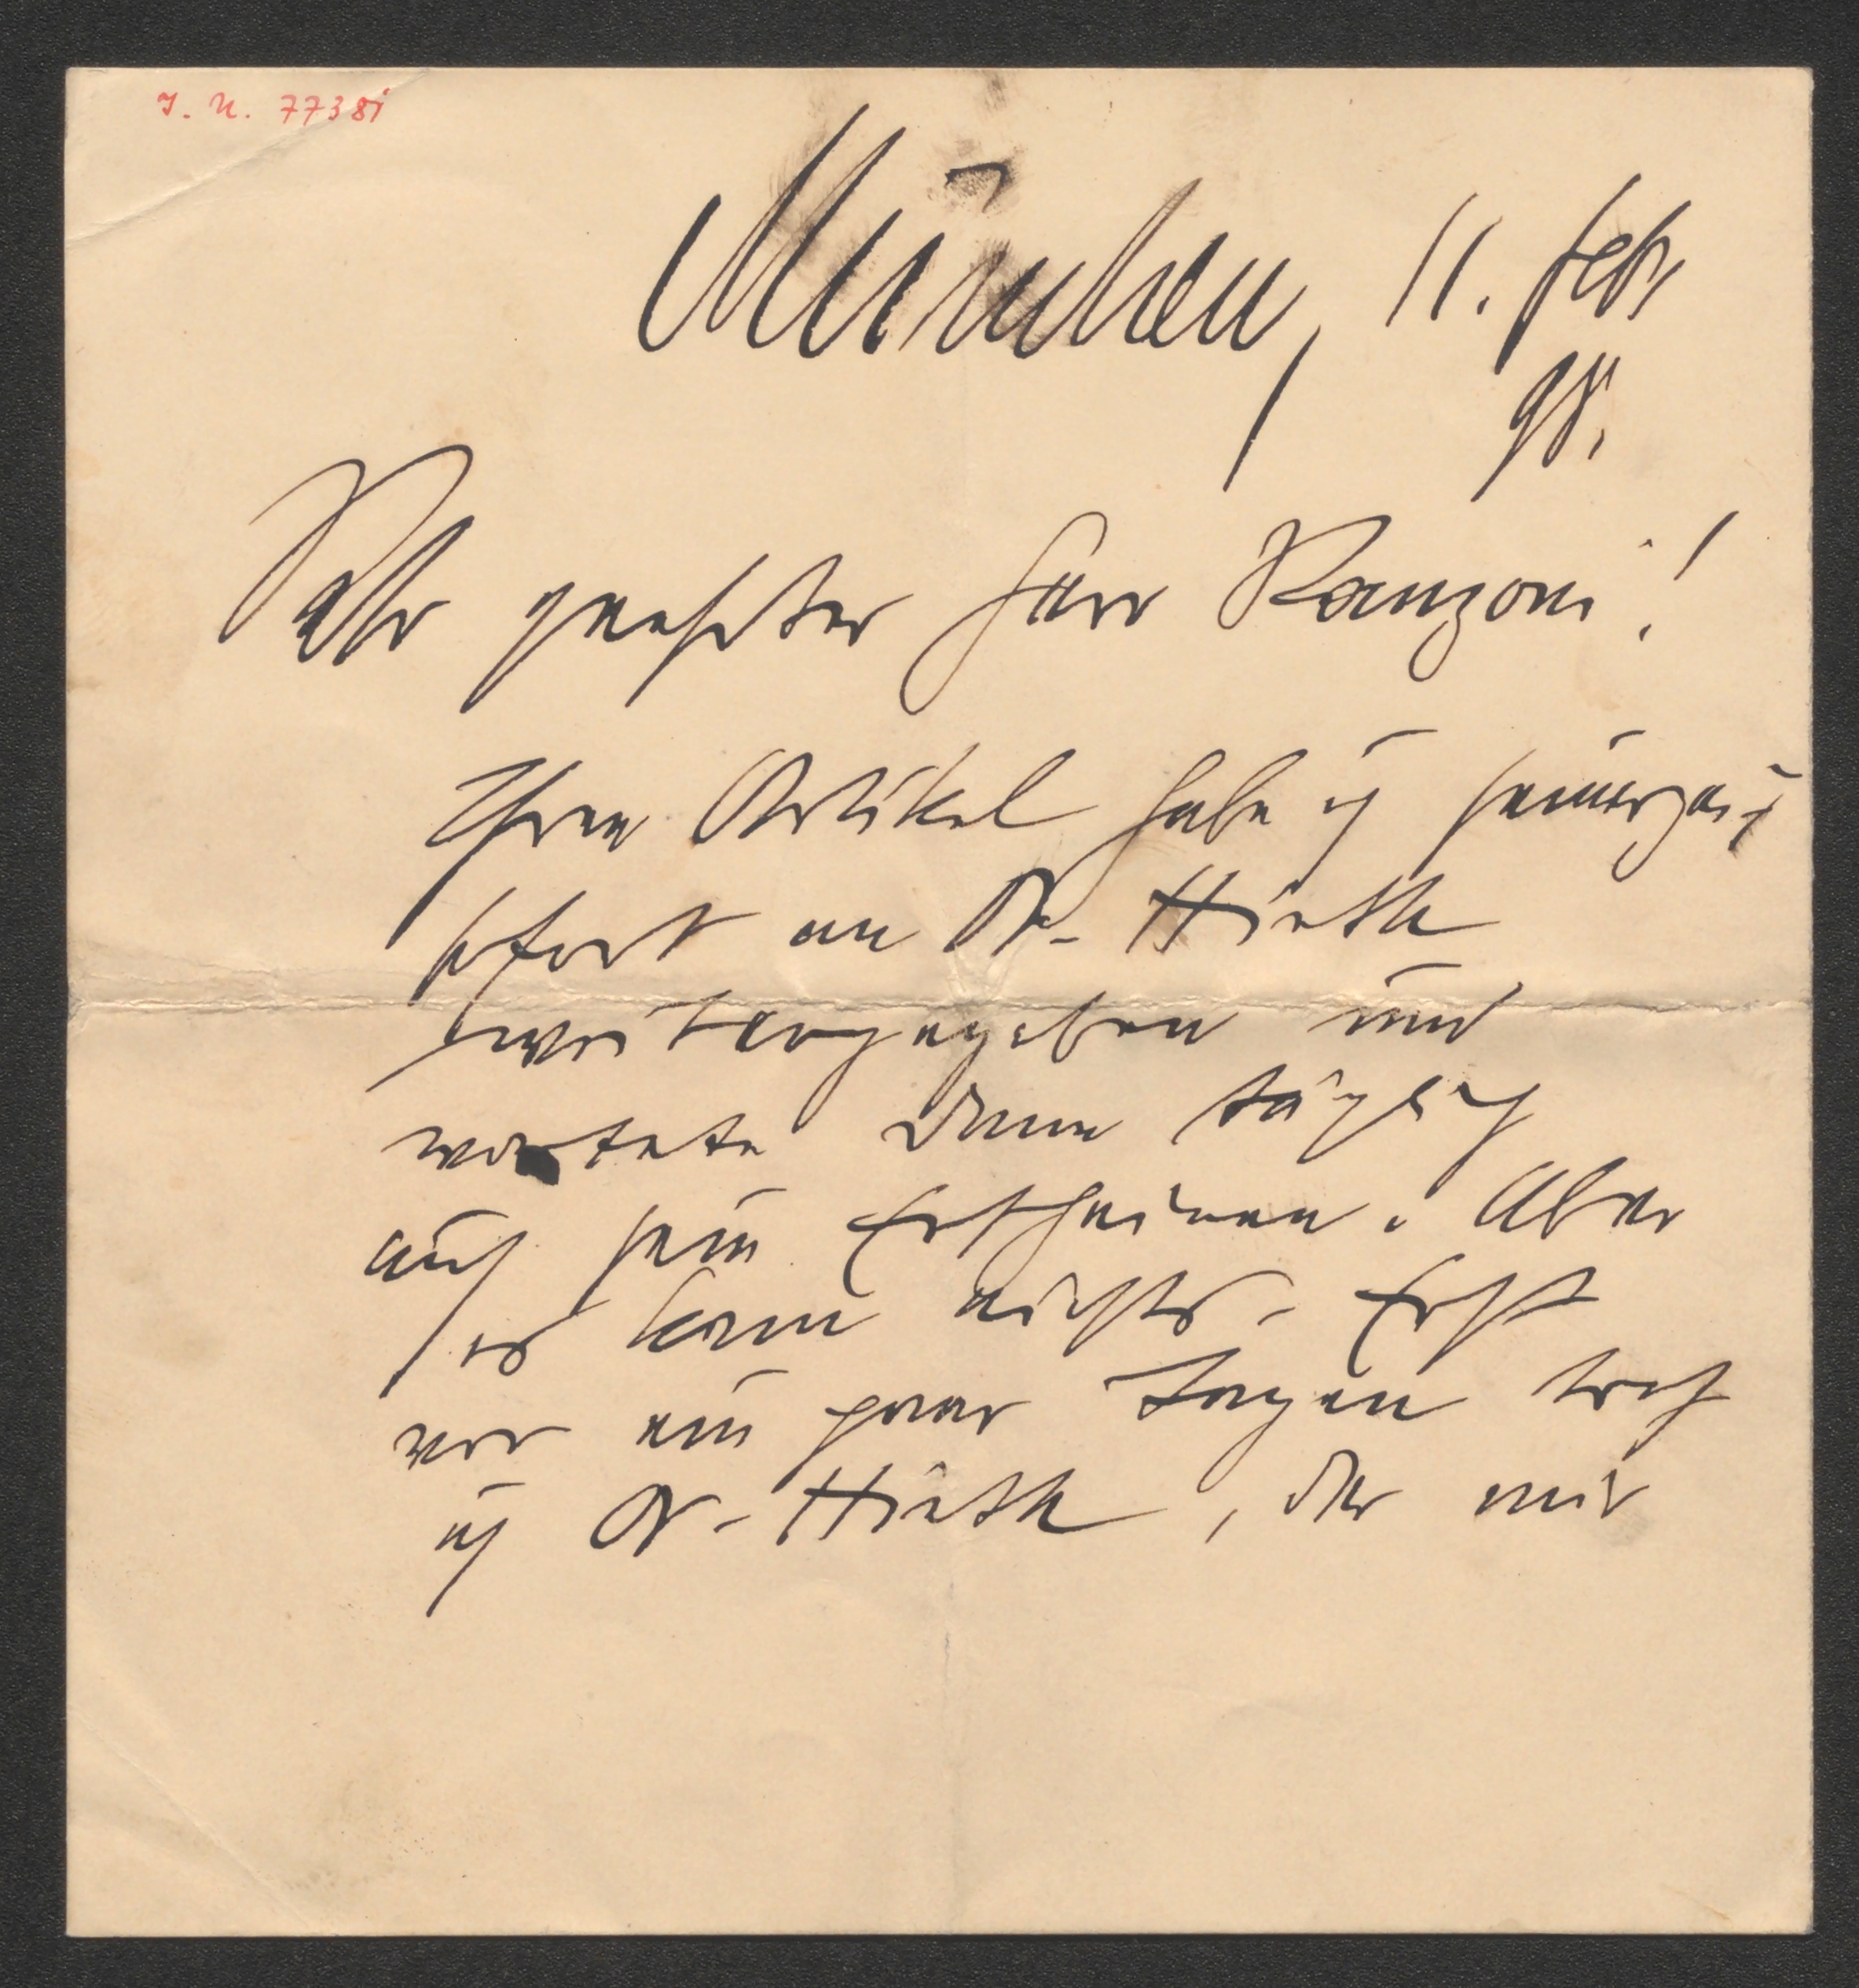 I. N. 77381
München, 11. Febr.
98.
Sehr geehrter Herr Ranzoni!
Ihren Artikel habe ich seinerzeit
sofort an Dr. Hirth
weitergegeben und
wartete dann täglich
auf sein Erscheinen. Aber
es kam nichts. Erst
vor ein paar Tagen traf
ich Dr. Hirth, der mir